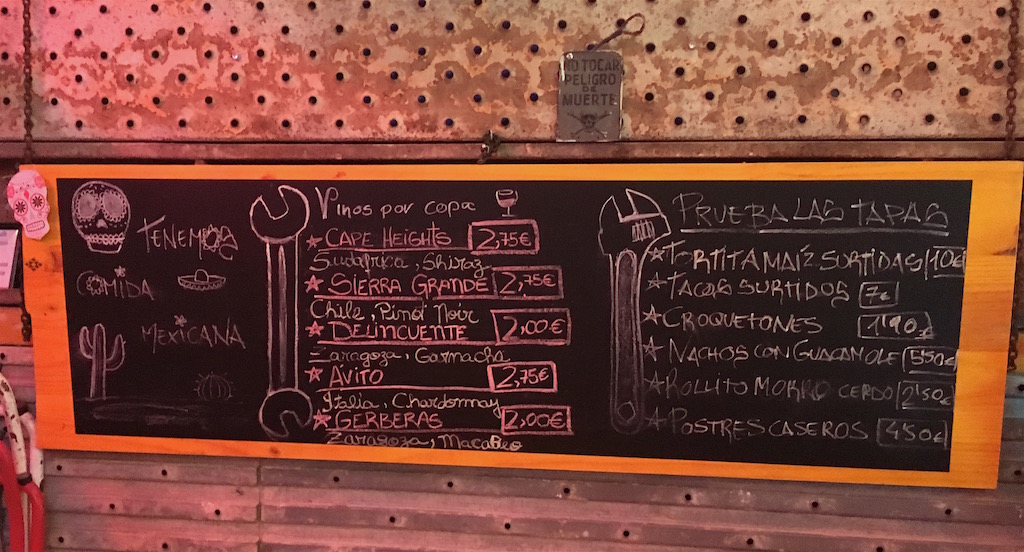 NO TOCAR
PELIGRO
DE
MUERTE
TENEMOS
COMIDA
MEXICANA
Vinos por copa
CAPE HEIGHTS 2,75€
Sudafrica, Shiraz
SIERRA GRANDE 2,75€
Chile, Pinot Noir
DELINCUENTE 2,00€
Zaragoza, Garnacha
AVITO 2,75€
Italia, Chardonnay
GERBERAS 2,00€
Zaragoza, Macabeo
PRUEBA LAS TAPAS
TORTITA MAÍZ SURTIDAS 10€
TACOS SURTIDOS 7€
CROQUETONES 1'90€
NACHOS CON GUACAMOLE 5'50€
ROLLITO MORRO CERDO 2'50€
POSTRES CASEROS 4'50€